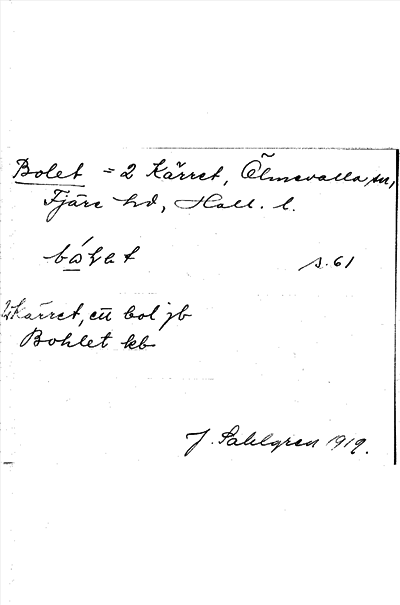 Bolet = 2 Kärret, Ölmevalla sn,
Fjäre hd, Hall. l.
bólet s. 61
2 Kärret, ett bol jb
Bohlet kb
J. Sahlgren 1919.